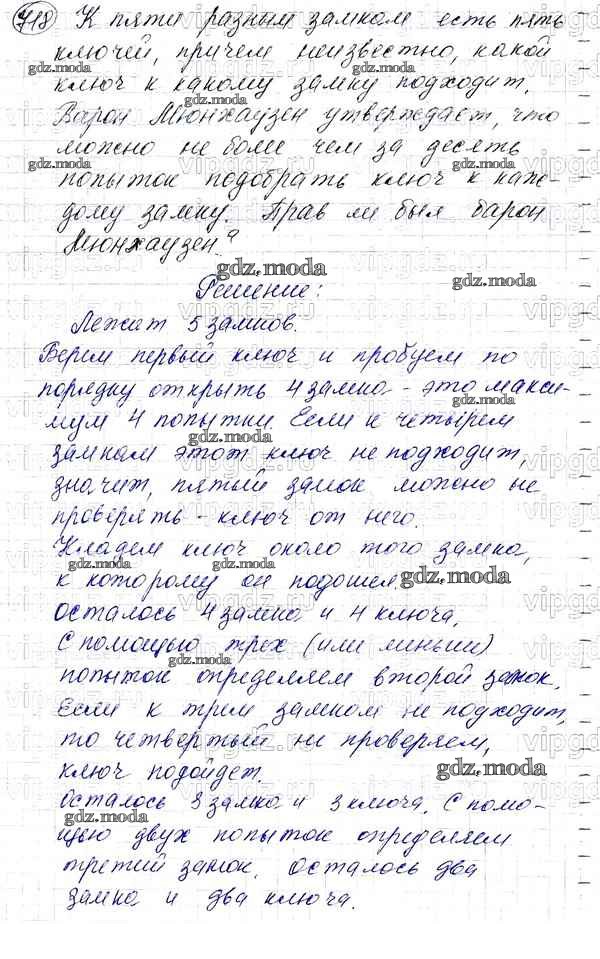 718 К пяти разным замкам есть пять
ключей, причем неизвестно, какой
ключ к какому замку подходит.
Барон Мюнхаузен утверждает, что
можно не более чем за десять
попыток подобрать ключ к каж-
дому замку. Прав ли был барон
Мюнхаузен?
Решение:
Лежит 5 замков.
Берем первый ключ и пробуем по
порядку открыть 4 замка - это макси-
мум 4 попытки. Если к четырем
замкам этот ключ не подходит,
значит, пятый замок можно не
проверять - ключ от него.
Кладем ключ около того замка,
к которому он подошел.
Осталось 4 замка и 4 ключа.
С помощью трех (или меньше)
попыток определяем второй замок.
Если к трем замкам не подходит,
то четвертый не проверяем,
ключ подойдет.
Осталось 3 замка и 3 ключа. С помо-
щью двух попыток определяем
третий замок. Осталось два
замка и два ключа.
gdz.moda
vipgdz.ru